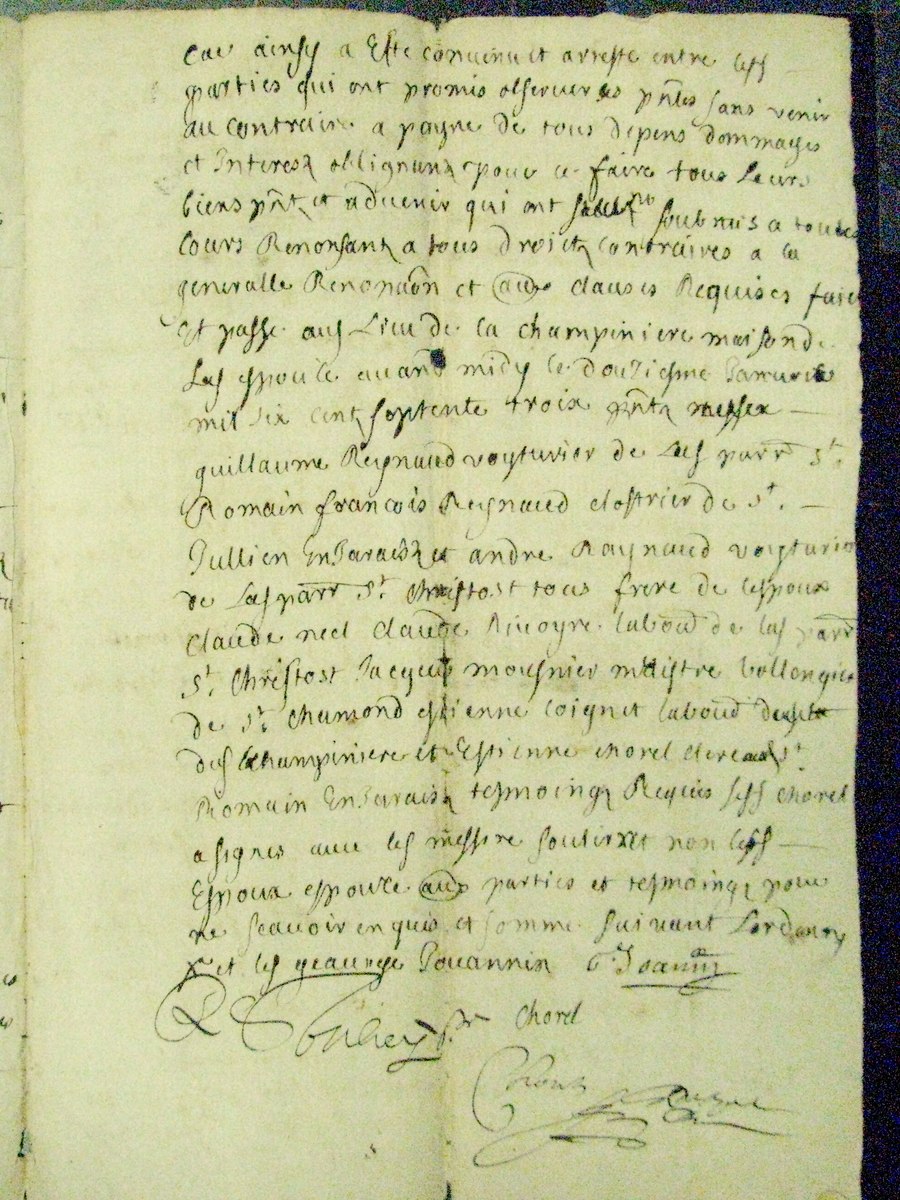 Car ainsy a Esté convenu et arresté entre lesd
parties qui ont promis observer les pntes sans venir
au contraire a payne de tous depens dommages
et Interestz obligeants pour ce faire tous leurs
biens pntz et advenir qui ont soubmis a toutes
Cours Renonsantz a tous droictz contraires a la
generalle Renonaon et aues clauses Requises faict
Et passé aud Lieu de la champiniere maison de
Lad espouze avand midy le douziesme
mil six centz septente trois pntz
guillaume Reynaud voyturier de lad parr St.
Romain françois Reynaud clostrier de St.
Jullien EnJaraistz et andre Raynaud voyturier
de Lad parr St Christost tous frere de lespoux
Claude neel Claude Rivoyre laboud de lad parr
St. Christost Jacques mousnier maistre
de St. chamond estienne Coignet laboud
dud Champiniere et Estienne chorel clerc St
Romain EnJaraistz tesmoingz Requis led chorel
a signés avec led messire et non lesd
Espoux espouze aues parties et tesmoingz pour
ne scavoir enquis et sommé suivant
et led Jouannin Joannin
chorel